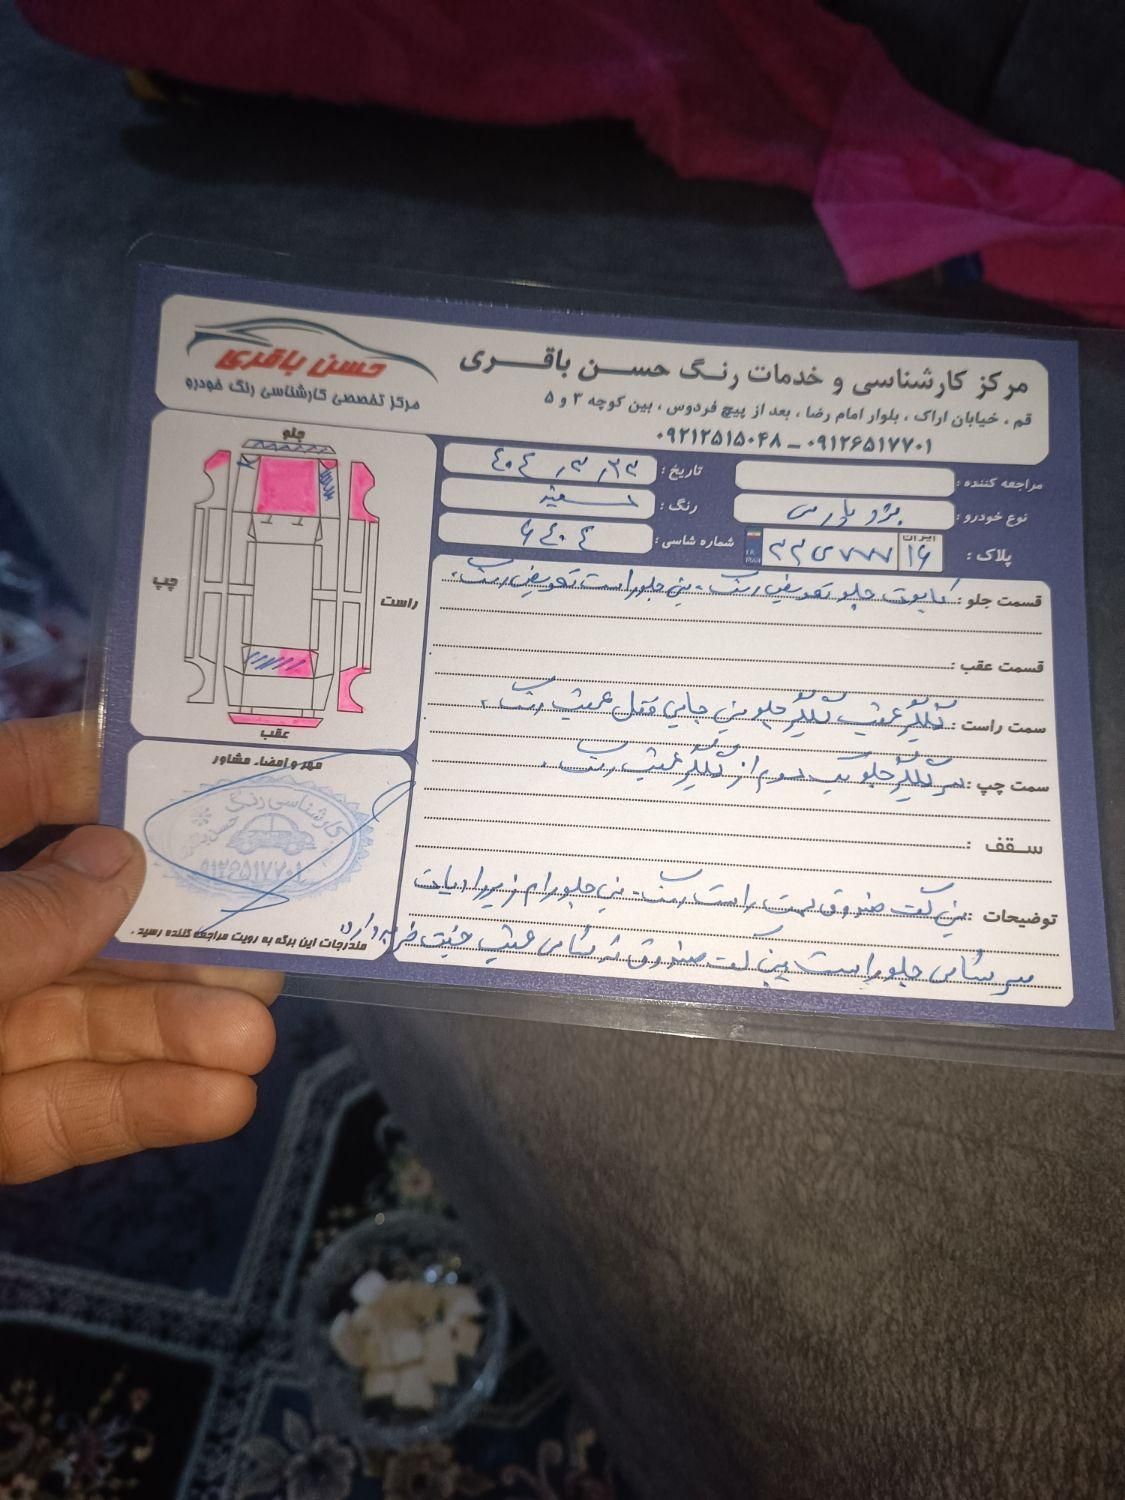 حسن باقری
مرکز تخصصی کارشناسی رنگ خودرو
مرکز کارشناسی و خدمات رنگ حسن باقری
قم ، خیابان اراک ، بلوار امام رضا ، بعد از پیچ فردوس ، بین کوچه ۳ و ۵
۰۹۱۲۶۵۱۷۷۰۱ ـ ۰۹۲۱۲۵۱۵۰۴۸
مراجعه کننده :
تاریخ : ۴۰۴٫۳٫۲۳
نوع خودرو : پژو پارس
رنگ : سفید
پلاک : ایران ۱۶ ۷۷۷ی۲۲
شماره شاسی : ۶۴۰۴
جلو
چپ
راست
عقب
قسمت جلو : کاپوت جلو تعویض رنگ - سینی جلو راست تعویض رنگ
قسمت عقب :
سمت راست : گلگیر عقب گلگیر جلو سینی جایی قفل عقب رنگ
سمت چپ : سر گلگیر جلو یک سوم از گلگیر عقب رنگ
سقف :
توضیحات : سینی کف صندوق سمت راست رنگ - سینی جلو رام زیر رادیات
سر شاسی جلو راست سینی کف صندوق ته شاسی عقب جفت ضربه دارد
مهر و امضاء مشاور
کارشناسی رنگ
۰۹۱۲۶۵۱۷۷۰۱
مندرجات این برگه به رویت مراجعه کننده رسید .